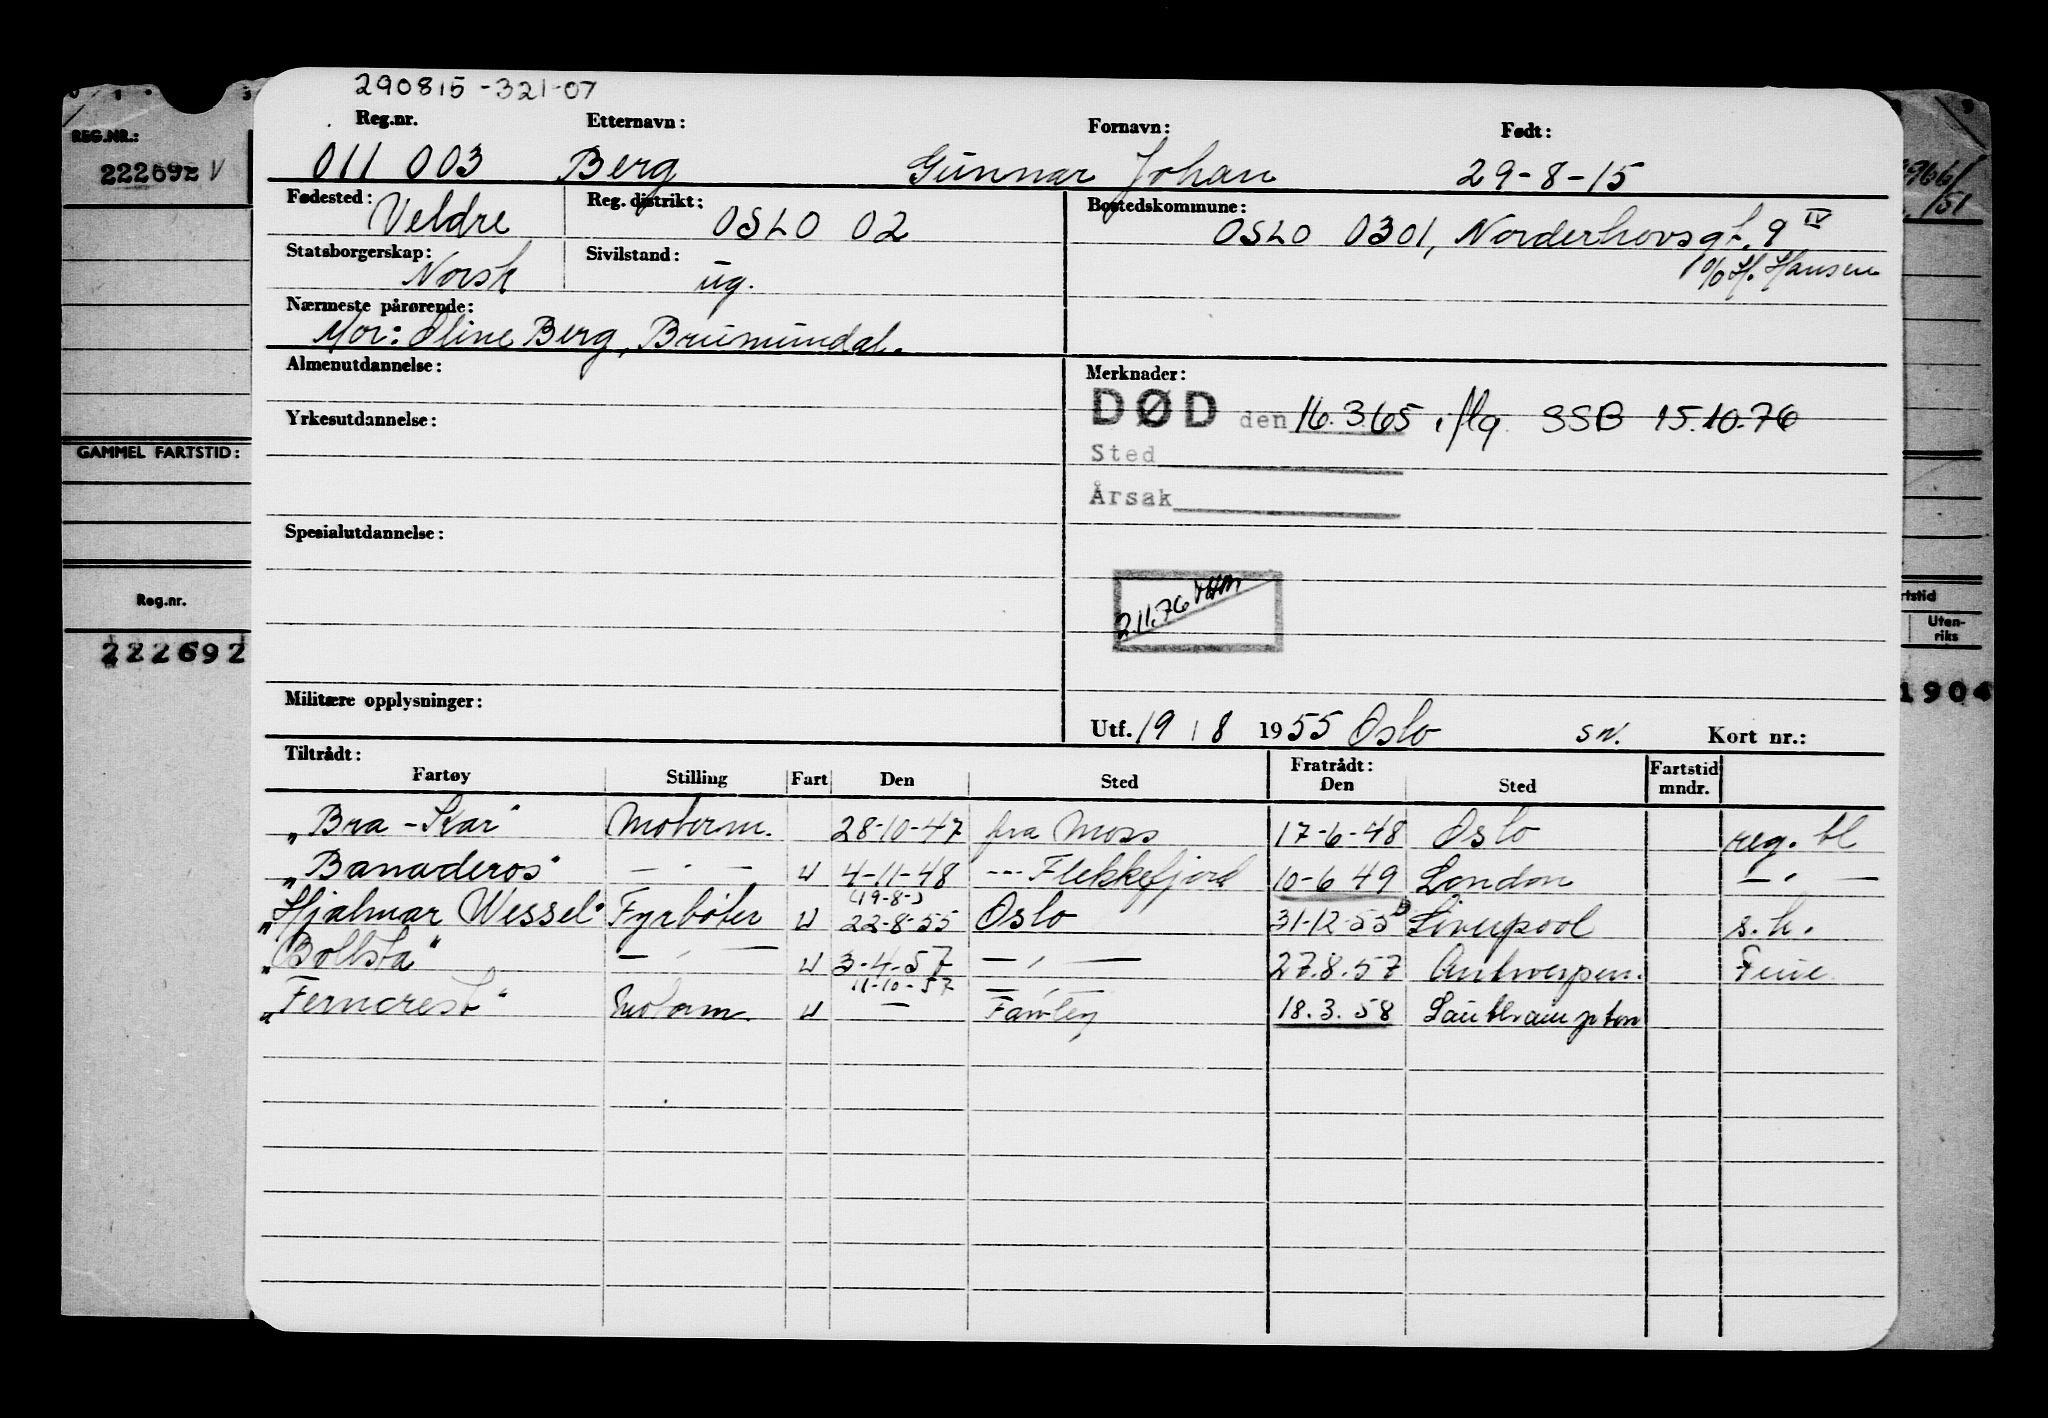 290815-321-07
REG.NR.:
222692 V
Reg.nr. Etternavn: Fornavn: Født:
011 003 Berg Gunnar Johan 29-8-15
Fødested: Veldre Reg. distrikt: OSLO 02 Bostedskommune: OSLO 0301, Norderhovsgt. 9 IV
Statsborgerskap: Norsk Sivilstand: ug. c/o H. Hansen
Nærmeste pårørende:
Mor: Oline Berg, Brumunddal.
Almenutdannelse: Merknader:
DØD den 16.3.65 iflg. SSB 15.10.76
Yrkesutdannelse:
Sted
Årsak
GAMMEL FARTSTID:
Spesialutdannelse:
2.11.76
Reg.nr.
222692
Uten-
riks
1904
Militære opplysninger:
Utf. 19 / 8 1955 Oslo s.v. Kort nr.:
Tiltrådt: Fratrådt: Fartstid
Fartøy Stilling Fart Den Sted Den Sted mndr.
"Bra-Kar" Motorm. 28-10-47 fra Moss 17-6-48 Oslo reg. bl
"Banaderos" — " — U 4-11-48 --- Flekkefjord 10-6 49 London — " —
(19-8-)
"Hjalmar Wessel" Fyrbøter U 22-8-55 Oslo 31-12-55 Liverpool s.h.
"Bollsta" — " — U 3-4-57 — " — 27.8.57 Antwerpen.
11-10-57 — " —
"Ferncrest" Motorm. U — Fawley 18.3.58 Southampton